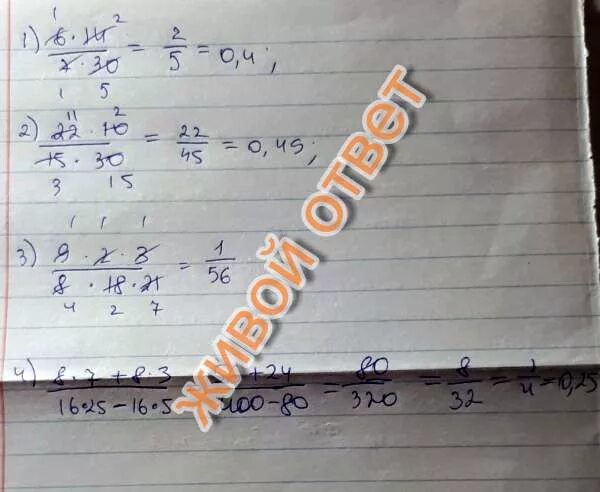 1) (6·14)/(7·30) = 2/5 = 0,4;
2) (22·10)/(15·30) = 22/45 = 0,49;
3) (9·2·3)/(8·18·21) = 1/56
4) (8·7+8·3)/(16·25-16·5) +24/400-80 = 80/320 = 8/32 = 1/4 = 0,25
ЖИВОЙ ОТВЕТ